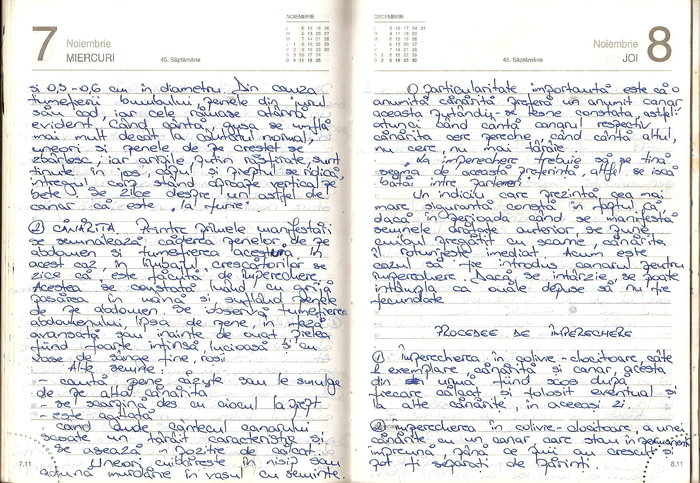 7 Noiembrie
MIERCURI
45. Săptămâna
NOIEMBRIE
și 0,5-0,6 cm în diametru. Din cauza
tumefierii bumbului, penele din jurul
său cad, iar cele rămase atârnă
evident. Când cântă, gușa se umflă
mai mult decât la cântecul normal,
uneori și penele de pe creștet se
zbârlesc, iar aripile, puțin răsfirate, sunt
ținute în jos, capul și pieptul se ridică,
întregul corp stând aproape vertical pe
bețe. Se zice despre un astfel de
canar că este „la furie".
① CÂNĂRIȚA. Printre primele manifestări
se semnalează căderea penelor de pe
abdomen și tumefierea acestuia. În
acest caz, în limbajul crescătorilor se
zice că este „pătimașă" de împerechere.
Acestea se constată luând cu grijă
pasărea în mână și suflând penele
de pe abdomen. Se observă tumefierea
abdomenului, lipsa de pene, în fază
avansată sau înainte de ouat, pielea
fiind foarte întinsă, lucioasă și cu
vase de sânge fine, roșii.
Alte semne:
- caută pene căzute sau le smulge
de pe altă cânăriță
- se scarpină des cu ciocul la piept
- este agitată
- când aude cântecul canarului
scoate un țârâit caracteristic și
se așează în poziție de călcat.
Uneori cuibărește în nisip sau
adună murdărie în vasul cu semințe.
7.11
DECEMBRIE
8 Noiembrie
JOI
45. Săptămâna
O particularitate importantă este că o
anumită cânăriță preferă un anumit canar,
aceasta putându-se lesne constata astfel:
atunci când cântă canarul respectiv
cânărița cere pereche, când cântă altul,
nu cere, nu mai țârâie.
La împerechere trebuie să se țină
seama de această preferință, altfel se iscă
bătăi între parteneri.
Un indiciu care prezintă cea mai
mare siguranță constă în faptul că
dacă în perioada când se manifestă
semnele arătate anterior, se pune
cuibul pregătit cu scame, cânărița
îl rotunjește imediat. Acum este
cazul să fie introdus canarul pentru
împerechere. Dacă se întârzie se poate
întâmpla ca ouăle depuse să nu fie
fecundate
PROCEDEE DE ÎMPERECHERE
① Împerecherea în colivie-clocitoare, câte
2 exemplare cânăriță și canar, acesta
din urmă fiind scos după
fiecare călcat și folosit eventual și
la alte cânărițe, în aceeași zi.
② Împerecherea în colivie-clocitoare, a unei
cânărițe cu un canar, care stau în permanență
împreună, până ce puii au crescut și
pot fi separați de părinți.
8.11